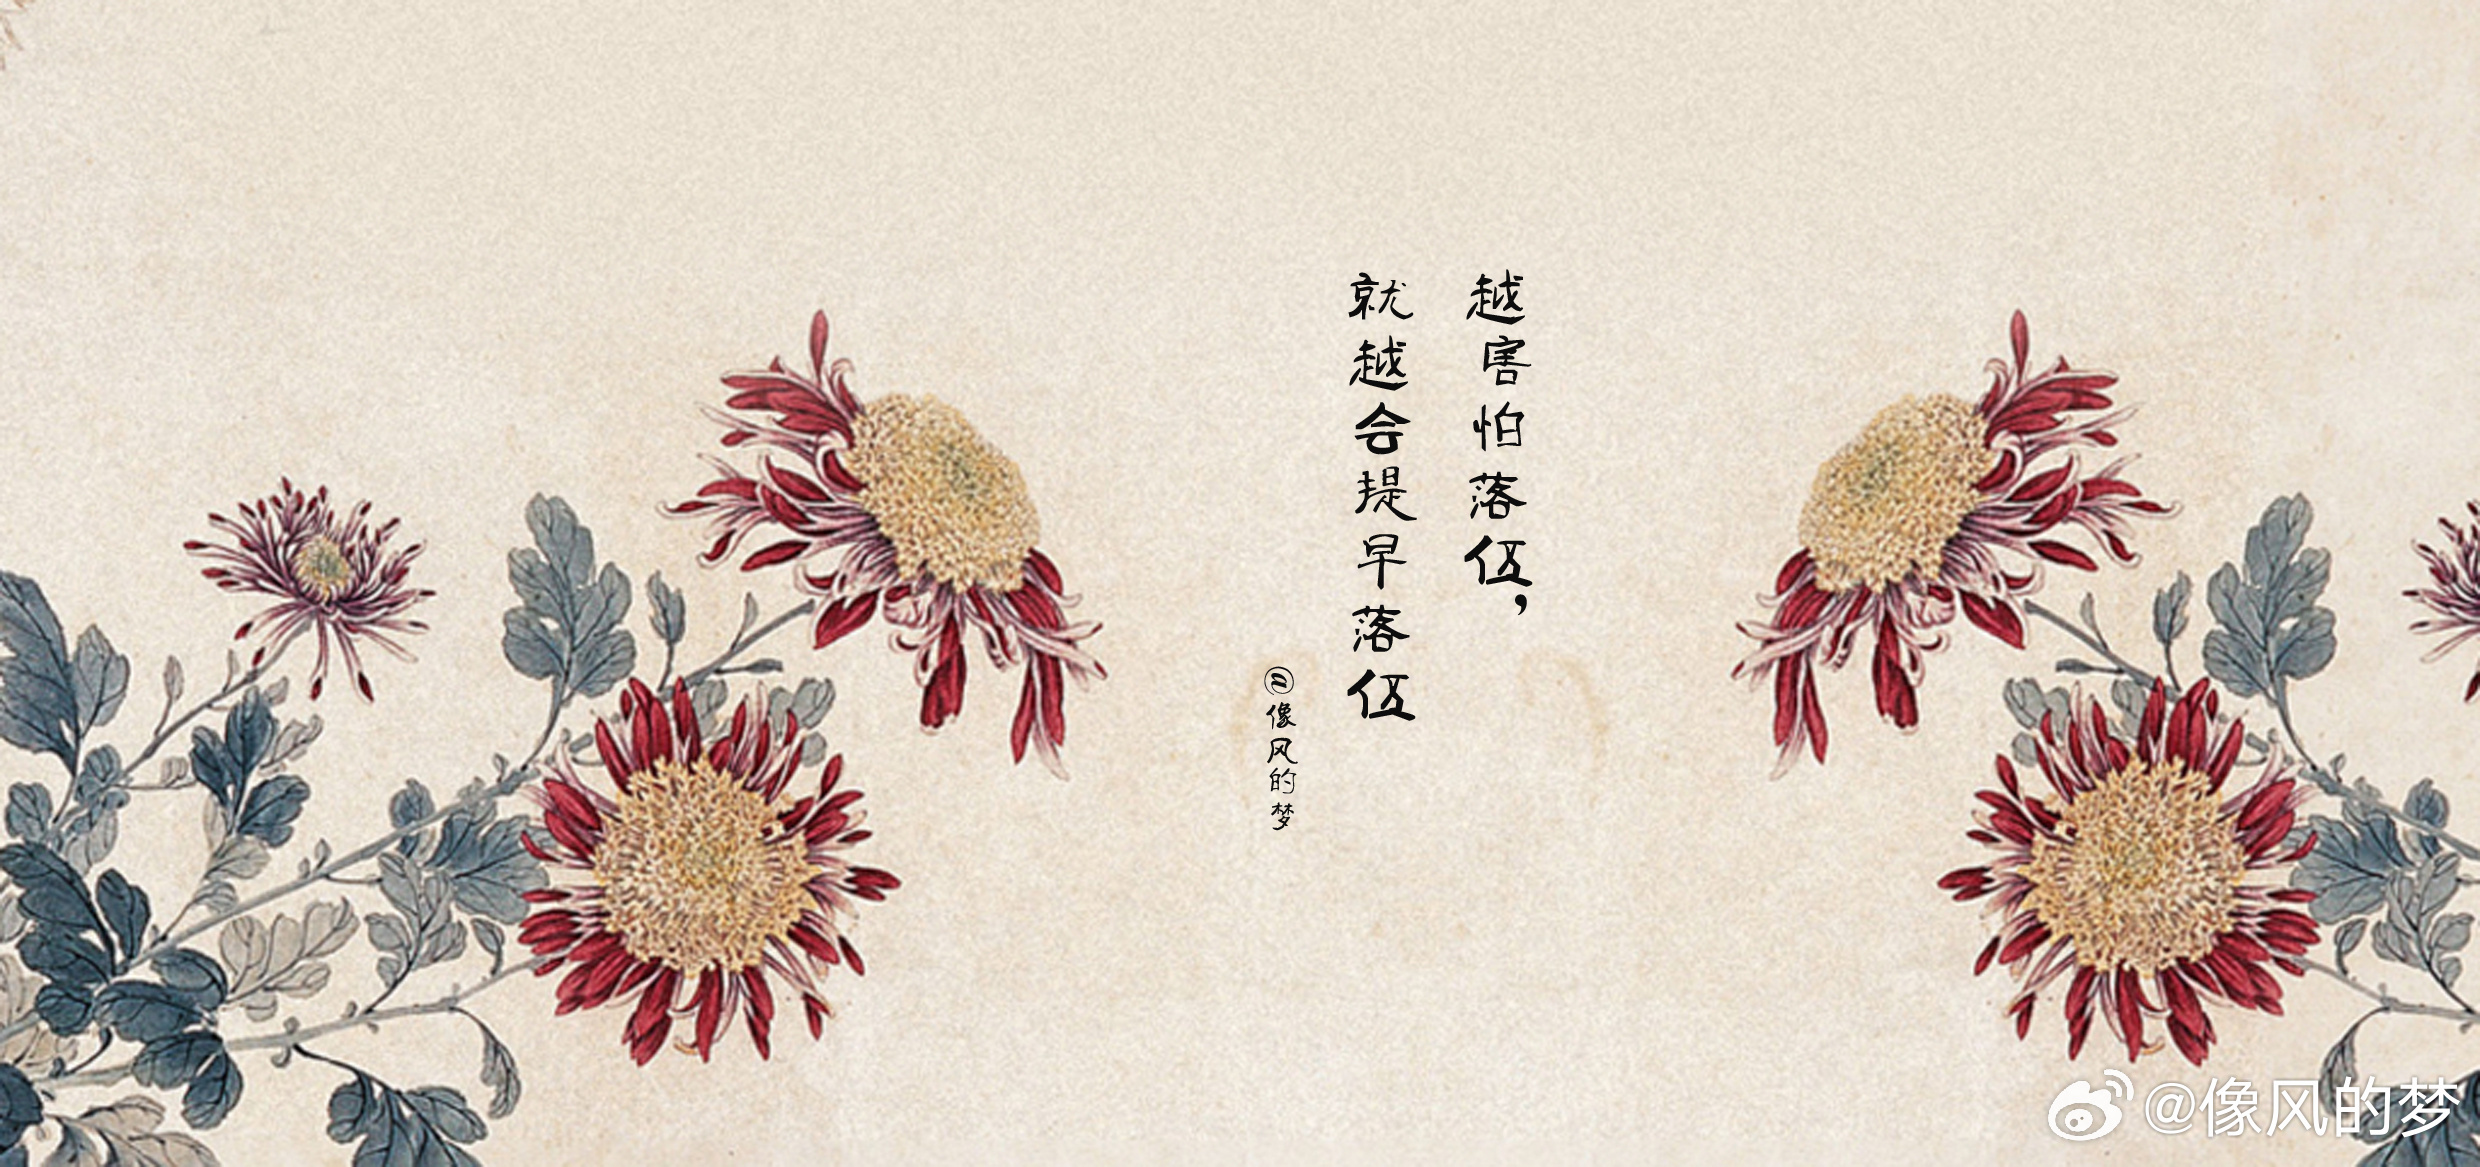 越害怕落伍，
就越会提早落伍
@像风的梦
@像风的梦